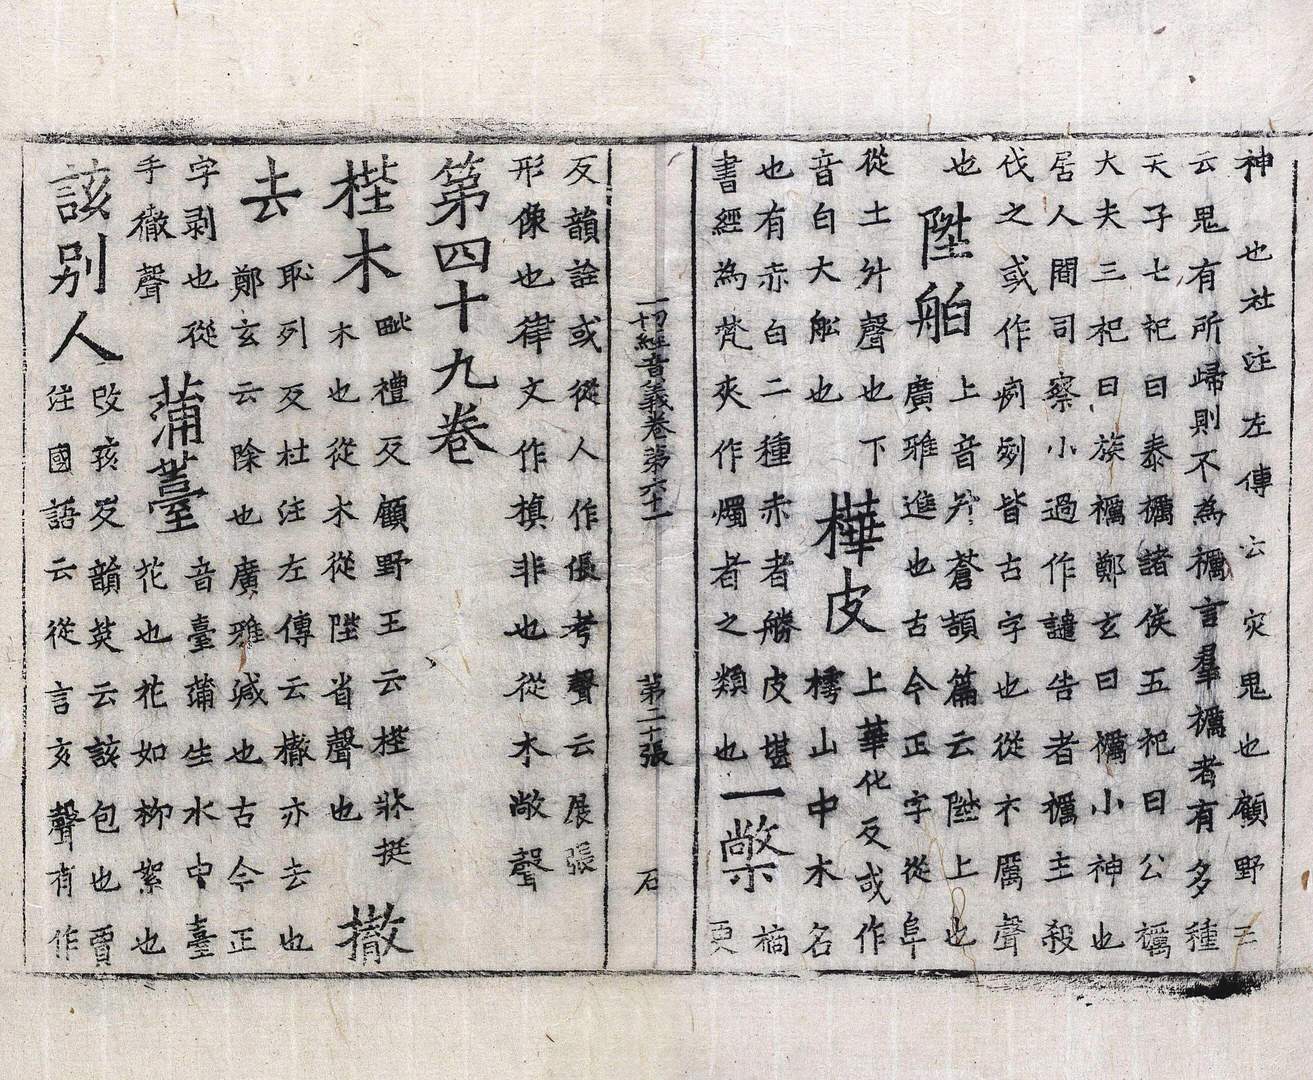 神也社注左傳云灾鬼也顧野王
云鬼有所歸則不為禲言羣禲者有多種
天子七祀曰泰禲諸侯五祀曰公禲
大夫三祀曰族禲鄭玄曰禲小神也
居人間司察小過作譴告者禲主殺
伐之或作𢓜𠜦皆古字也從示厲聲
也
陞舶
上音升蒼頡篇云陞上也
廣雅進也古今正字從阜
從土升聲也下
音白大舩也
樺皮
上華化反或作
樗山中木名
也有赤白二種赤者勝皮堪
書經為梵夾作燭者之類也
一檠
擿
更
反韻詮或從人作倀考聲云展張
形像也律文作槙非也從木敞聲
第四十九卷
梐木
毗禮反顧野王云梐牀挺
木也從木從陛省聲也
撤
去
恥列反杜注左傳云撤亦去也
鄭玄云除也廣雅減也古今正
字剥也從
手徹聲
蒲薹
音臺蒲生水中臺
花也花如柳絮也
該別人
改孩反韻英云該包也賈
注國語云從言亥聲有作
一切經音義卷第六十一
第二十張
石